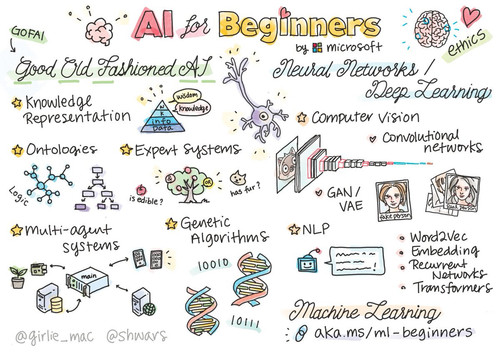 GOFAI
AI for Beginners
by microsoft
ethics
Good Old Fashioned AI
Knowledge
Representation
wisdom
knowledge
k
info
Data
Ontologies
Logic
Expert Systems
is edible?
has fur?
Multi-agent
systems
main
Genetic
Algorithms
10010
10111
Neural Networks /
Deep Learning
Computer Vision
Convolutional
networks
GAN/
VAE
fake person
NLP
Word2Vec
Embedding
Recurrent
Networks
Transformers
Machine Learning
aka.ms/ml-beginners
@girlie_mac @shwars